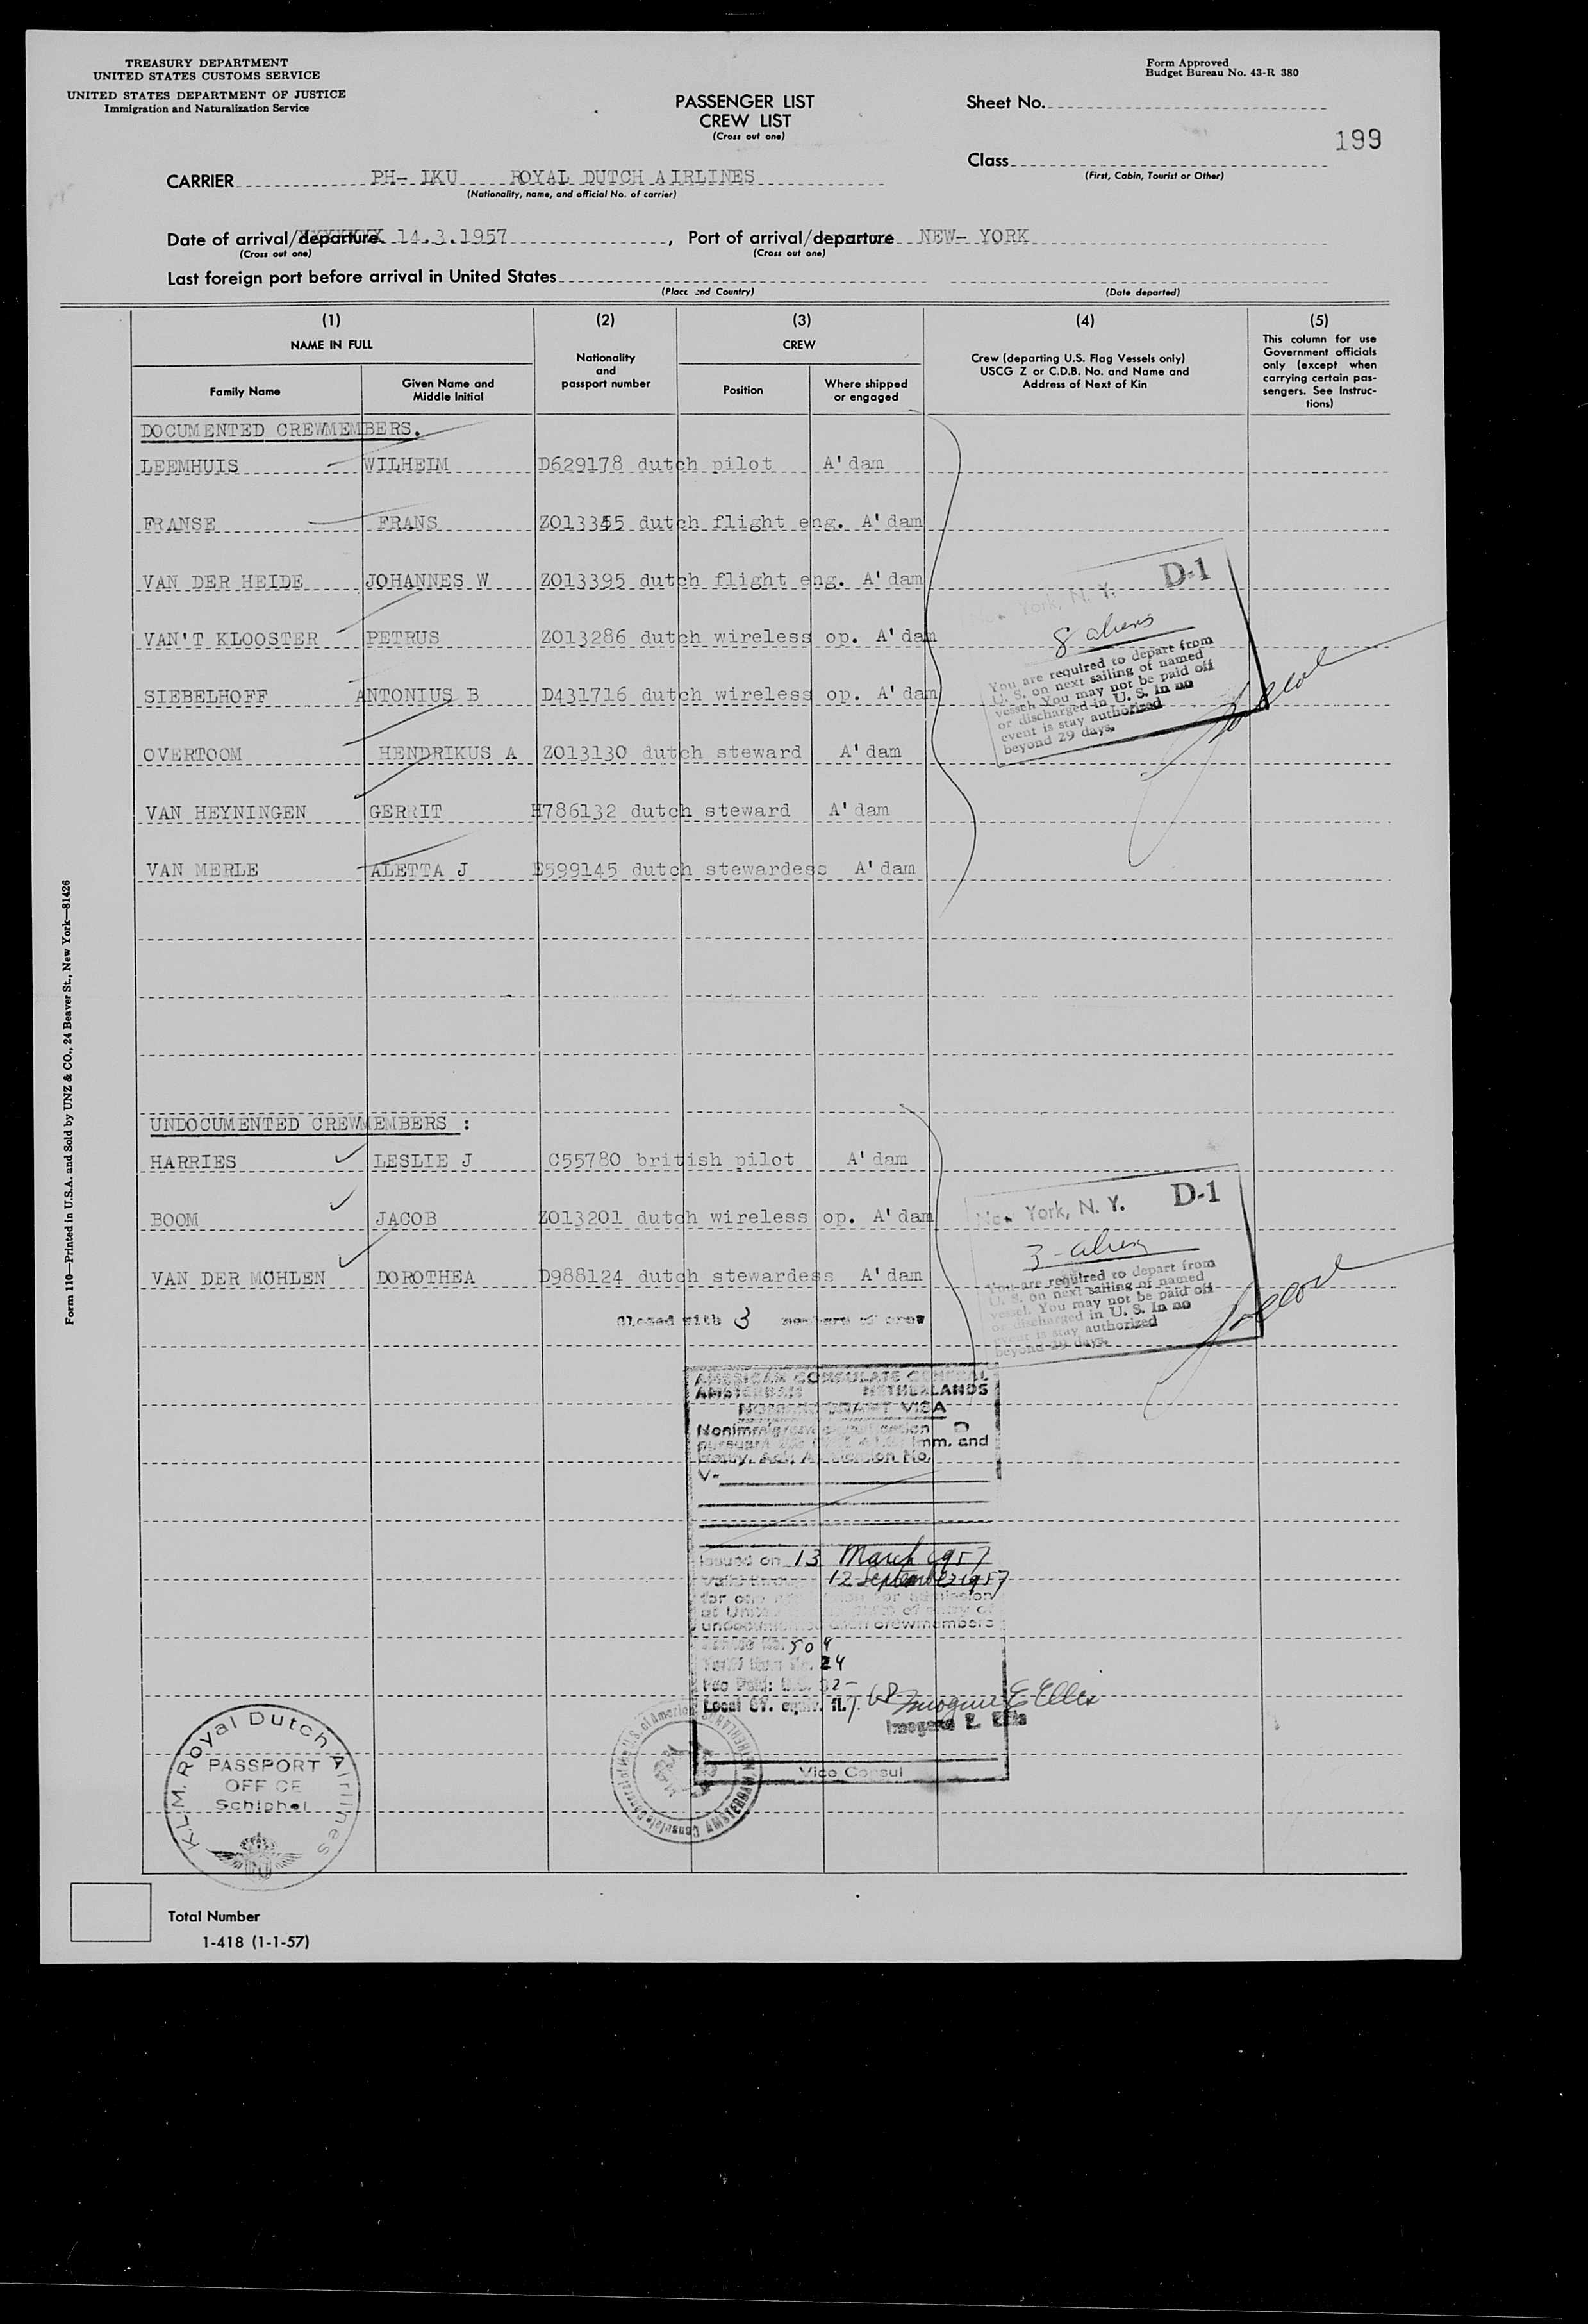 TREASURY DEPARTMENT
UNITED STATES CUSTOMS SERVICE
UNITED STATES DEPARTMENT OF JUSTICE
Immigration and Naturalization Service
Form Approved
Budget Bureau No. 43-R 380
PASSENGER LIST
CREW LIST
(Cross out one)
Sheet No.
199
Class
(First, Cabin, Tourist or Other)
CARRIER PH- LKU ROYAL DUTCH AIRLINES
(Nationality, name, and official No. of carrier)
Date of arrival/departure 14.3.1957, Port of arrival/departure NEW- YORK
(Cross out one) (Cross out one)
Last foreign port before arrival in United States
(Place and Country) (Date departed)
(1) (2) (3) (4) (5)
NAME IN FULL
Family Name
Given Name and Middle Initial
Nationality and passport number
CREW
Position
Where shipped or engaged
Crew (departing U.S. Flag Vessels only) USCG Z or C.D.B. No. and Name and Address of Next of Kin
This column for use Government officials only (except when carrying certain passengers. See Instructions)
DOCUMENTED CREWMEMBERS.
LEEMHUIS WILHELM D629178 dutch pilot A'dam
FRANSE FRANS Z013355 dutch flight eng. A'dam
VAN DER HEIDE JOHANNES W Z013395 dutch flight eng. A'dam
VAN'T KLOOSTER PETRUS Z013286 dutch wireless op. A'dam
SIEBELHOFF ANTONIUS B D431716 dutch wireless op. A'dam
OVERTOOM HENDRIKUS A Z013130 dutch steward A'dam
VAN HEYNINGEN GERRIT H786132 dutch steward A'dam
VAN MERLE ALETTA J E599145 dutch stewardess A'dam
New York, N. Y. D-1
8 aliens
You are required to depart from
U. S. on next sailing of named
vessel. You may not be paid off
or discharged in U. S. In no
event is stay authorized
beyond 29 days.
UNDOCUMENTED CREWMEMBERS :
HARRIES LESLIE J C55780 british pilot A'dam
BOOM JACOB Z013201 dutch wireless op. A'dam
VAN DER MOHLEN DOROTHEA D988124 dutch stewardess A'dam
Closed with 3 members of crew
New York, N. Y. D-1
3 - aliens
You are required to depart from
U. S. on next sailing of named
vessel. You may not be paid off
or discharged in U. S. In no
event is stay authorized
beyond 29 days.
AMERICAN CONSULATE GENERAL
AMSTERDAM NETHERLANDS
NONIMMIGRANT VISA
Nonimmigrant classification D
Imm. and
V-
Issued on 13 March 1957
Valid through 12 September 1957
for admission
at United of entry of
undocumented alien crewmembers
Service No. 504
Tariff Item No. 24
Fee Paid: U.S. $2-
Local Cy. equiv. fl.
Imogene E Ellis
Imogene E. Ellis
Vice Consul
K.L.M. Royal Dutch Airlines
PASSPORT
OFFICE
Schiphol
Form 110—Printed in U.S.A. and Sold by UNZ & CO., 24 Beaver St., New York—81426
Total Number
1-418 (1-1-57)